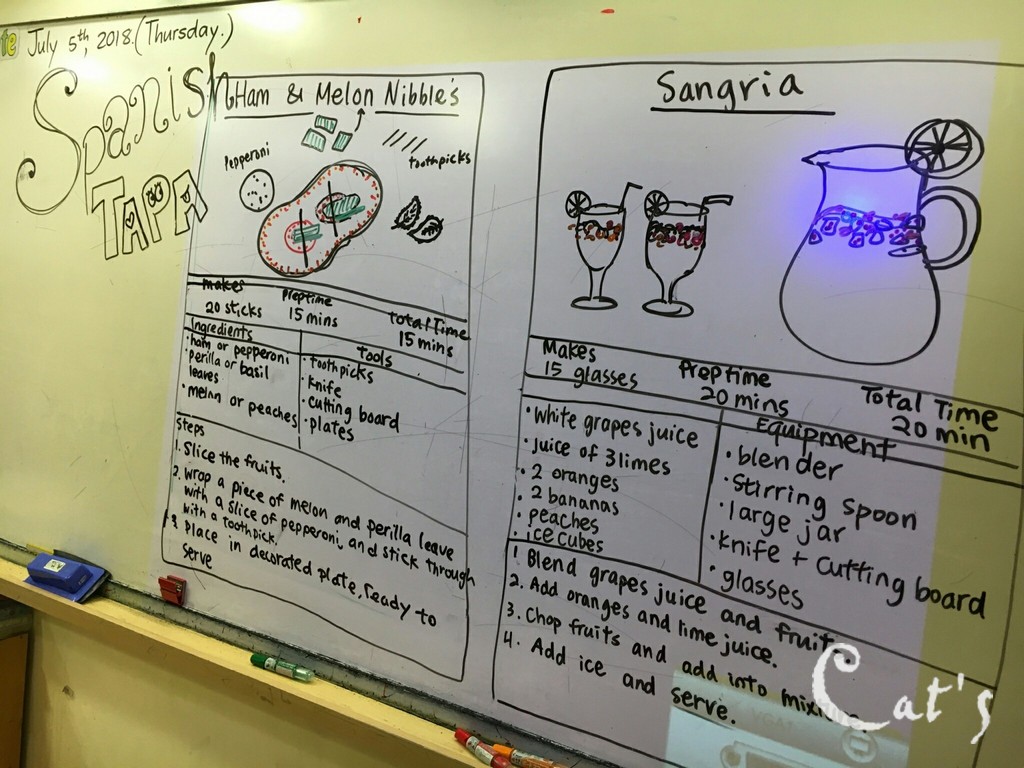 July 5th, 2018. (Thursday.)
Spanish
TAPA
Ham & Melon Nibble's
pepperoni
toothpicks
makes
20 sticks
Preptime
15 mins
total Time
15 mins
Ingredients
· ham or pepperoni
· perilla or basil
leaves
· melon or peaches
Tools
· Toothpicks
· knife
· cutting board
· plates
Steps
1. Slice the fruits.
2. wrap a piece of melon and perilla leave
with a slice of pepperoni, and stick through
with a toothpick.
3. Place in decorated plate, ready to
serve
Sangria
Makes
15 glasses
Preptime
20 mins
Total Time
20 min
· White grapes juice
· juice of 3 limes
· 2 oranges
· 2 bananas
· peaches
· ice cubes
Equipment
· blender
· Stirring spoon
· large jar
· knife + cutting board
· glasses
1. Blend grapes juice and fruit
2. Add oranges and lime juice.
3. Chop fruits and add into
4. Add ice and serve.
Cat's